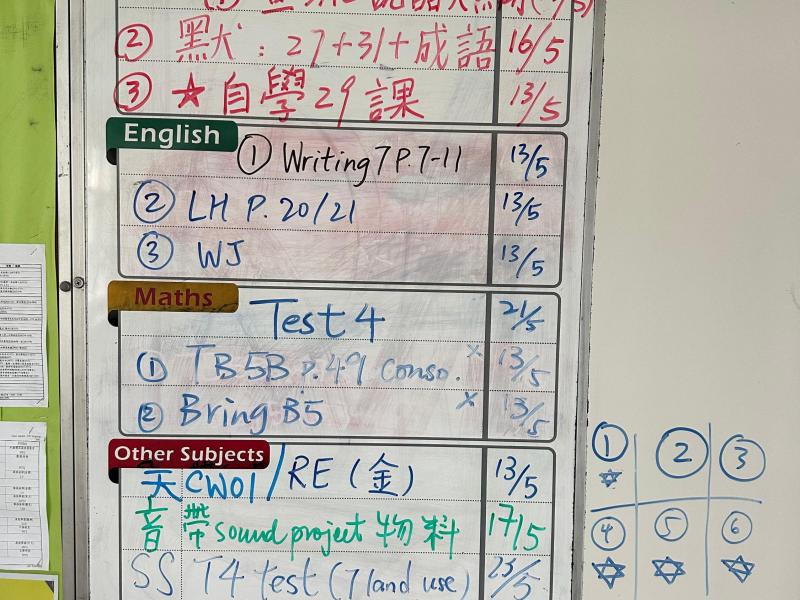 ② 黙犬：27+31+成語 16/5
③ ★自學29課 13/5
English
① Writing 7 P.7-11 13/5
② LH P.20/21 13/5
③ WJ 13/5
Maths
Test 4 21/5
① TB 5B p.49 conso. × 13/5
② Bring B5 × 13/5
Other Subjects
天 CW01/RE (金) 13/5
音 帶 sound project 物料 17/5
SS T4 test (7 land use) 23/5
① ② ③
④ ⑤ ⑥